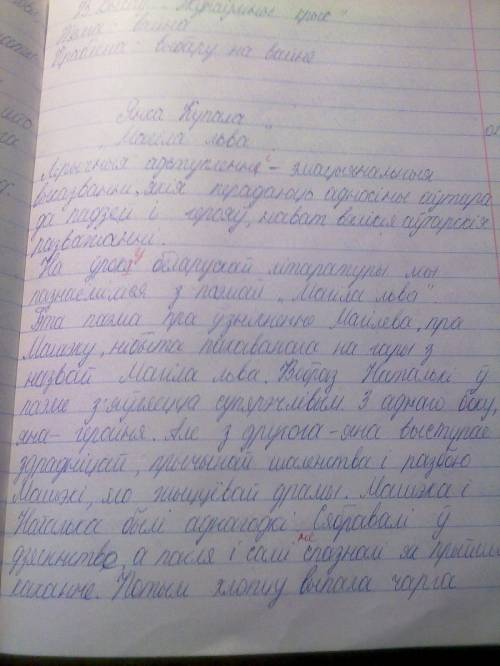 В. Быкаў „Жураўліны крык"
Тэма: вайна
Праблема: выбару на вайне
Янка Купала
„Магіла льва"
Лірычныя адступленні – эмацыянальныя
выказванні, якія перадаюць адносіны аўтара
да падзей і герояў, нават велікія аўтарскія
разважанні.
На ўроку беларускай літаратуры мы
пазнаёмімся з паэмай „Магіла льва".
Гэта паэма пра ўзнікненне Магілева, пра
Машэку, нібыта пахаванага на гары з
назвай Магіла льва. Вобраз Наталькі ў
паэме з'яўляецца супярэчлівым. З аднаго боку,
яна – гераіня. Але з другога – яна выступае
здрадніцай, прычынай шаленства і разбою
Машэкі, яго жыццёвай драмы. Машэка і
Наталька былі аднагодкі. Сябравалі ў
дзяцінстве, а пасля і самі не спазналі як прыйшло
каханне. Потым хлопцу выпала чарга